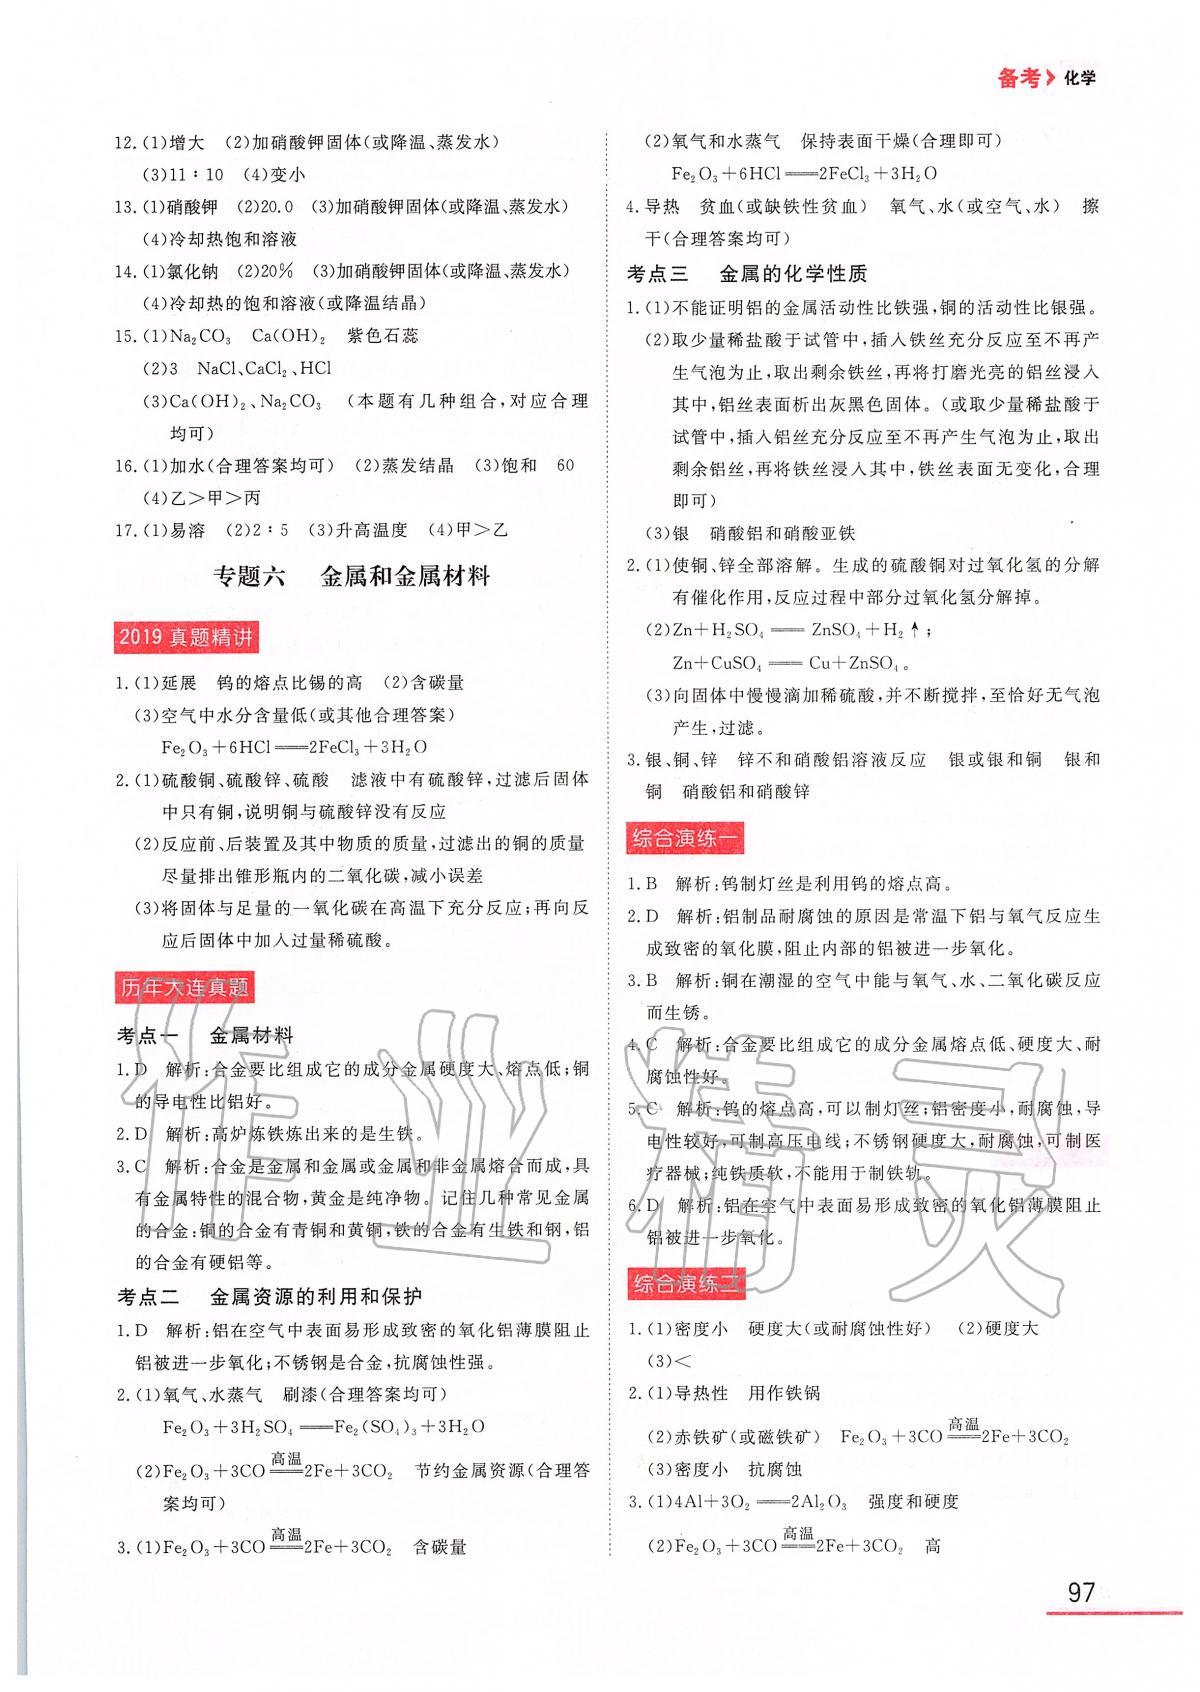 备考 化学
12.(1)增大 (2)加硝酸钾固体(或降温、蒸发水)
(3)11∶10 (4)变小
13.(1)硝酸钾 (2)20.0 (3)加硝酸钾固体(或降温、蒸发水)
(4)冷却热饱和溶液
14.(1)氯化钠 (2)20% (3)加硝酸钾固体(或降温、蒸发水)
(4)冷却热的饱和溶液(或降温结晶)
15.(1)Na₂CO₃ Ca(OH)₂ 紫色石蕊
(2)3 NaCl、CaCl₂、HCl
(3)Ca(OH)₂、Na₂CO₃ (本题有几种组合,对应合理
均可)
16.(1)加水(合理答案均可) (2)蒸发结晶 (3)饱和 60
(4)乙>甲>丙
17.(1)易溶 (2)2∶5 (3)升高温度 (4)甲>乙
专题六 金属和金属材料
2019 真题精讲
1.(1)延展 钨的熔点比锡的高 (2)含碳量
(3)空气中水分含量低(或其他合理答案)
Fe₂O₃+6HCl══2FeCl₃+3H₂O
2.(1)硫酸铜、硫酸锌、硫酸 滤液中有硫酸锌,过滤后固体
中只有铜,说明铜与硫酸锌没有反应
(2)反应前、后装置及其中物质的质量,过滤出的铜的质量
尽量排出锥形瓶内的二氧化碳,减小误差
(3)将固体与足量的一氧化碳在高温下充分反应;再向反
应后固体中加入过量稀硫酸。
历年大连真题
考点一 金属材料
1.D 解析:合金要比组成它的成分金属硬度大、熔点低;铜
的导电性比铝好。
2.D 解析:高炉炼铁炼出来的是生铁。
3.C 解析:合金是金属和金属或金属和非金属熔合而成,具
有金属特性的混合物,黄金是纯净物。记住几种常见金属
的合金:铜的合金有青铜和黄铜,铁的合金有生铁和钢,铝
的合金有硬铝等。
考点二 金属资源的利用和保护
1.D 解析:铝在空气中表面易形成致密的氧化铝薄膜阻止
铝被进一步氧化;不锈钢是合金,抗腐蚀性强。
2.(1)氧气、水蒸气 刷漆(合理答案均可)
Fe₂O₃+3H₂SO₄══Fe₂(SO₄)₃+3H₂O
(2)Fe₂O₃+3CO 高温══2Fe+3CO₂ 节约金属资源(合理答
案均可)
3.(1)Fe₂O₃+3CO 高温══2Fe+3CO₂ 含碳量
(2)氧气和水蒸气 保持表面干燥(合理即可)
Fe₂O₃+6HCl══2FeCl₃+3H₂O
4.导热 贫血(或缺铁性贫血) 氧气、水(或空气、水) 擦
干(合理答案均可)
考点三 金属的化学性质
1.(1)不能证明铝的金属活动性比铁强,铜的活动性比银强。
(2)取少量稀盐酸于试管中,插入铁丝充分反应至不再产
生气泡为止,取出剩余铁丝,再将打磨光亮的铝丝浸入
其中,铝丝表面析出灰黑色固体。(或取少量稀盐酸于
试管中,插入铝丝充分反应至不再产生气泡为止,取出
剩余铝丝,再将铁丝浸入其中,铁丝表面无变化,合理
即可)
(3)银 硝酸铝和硝酸亚铁
2.(1)使铜、锌全部溶解。生成的硫酸铜对过氧化氢的分解
有催化作用,反应过程中部分过氧化氢分解掉。
(2)Zn+H₂SO₄══ZnSO₄+H₂↑;
Zn+CuSO₄══Cu+ZnSO₄。
(3)向固体中慢慢滴加稀硫酸,并不断搅拌,至恰好无气泡
产生,过滤。
3.银、铜、锌 锌不和硝酸铝溶液反应 银或银和铜 银和
铜 硝酸铝和硝酸锌
综合演练一
1.B 解析:钨制灯丝是利用钨的熔点高。
2.D 解析:铝制品耐腐蚀的原因是常温下铝与氧气反应生
成致密的氧化膜,阻止内部的铝被进一步氧化。
3.B 解析:铜在潮湿的空气中能与氧气、水、二氧化碳反应
而生锈。
4.C 解析:合金要比组成它的成分金属熔点低、硬度大、耐
腐蚀性好。
5.C 解析:钨的熔点高,可以制灯丝;铝密度小,耐腐蚀,导
电性较好,可制高压电线;不锈钢硬度大,耐腐蚀,可制医
疗器械;纯铁质软,不能用于制铁轨。
6.D 解析:铝在空气中表面易形成致密的氧化铝薄膜阻止
铝被进一步氧化。
综合演练二
1.(1)密度小 硬度大(或耐腐蚀性好) (2)硬度大
(3)<
2.(1)导热性 用作铁锅
(2)赤铁矿(或磁铁矿) Fe₂O₃+3CO 高温══2Fe+3CO₂
(3)密度小 抗腐蚀
3.(1)4Al+3O₂══2Al₂O₃ 强度和硬度
(2)Fe₂O₃+3CO 高温══2Fe+3CO₂ 高
97
作业精灵